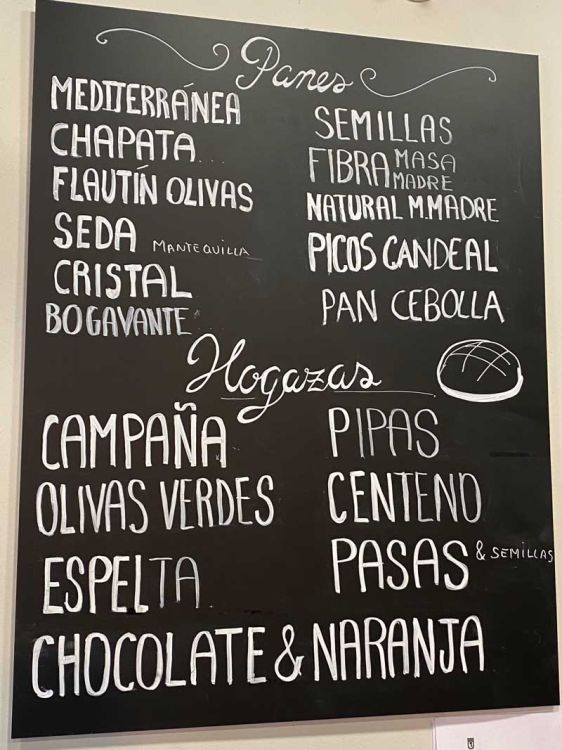 Panes
MEDITERRÁNEA
CHAPATA
FLAUTÍN OLIVAS
SEDA MANTEQUILLA
CRISTAL
BOGAVANTE
SEMILLAS
FIBRA MASA MADRE
NATURAL M.MADRE
PICOS CANDEAL
PAN CEBOLLA
Hogazas
CAMPAÑA
OLIVAS VERDES
ESPELTA
PIPAS
CENTENO
PASAS & SEMILLAS
CHOCOLATE & NARANJA